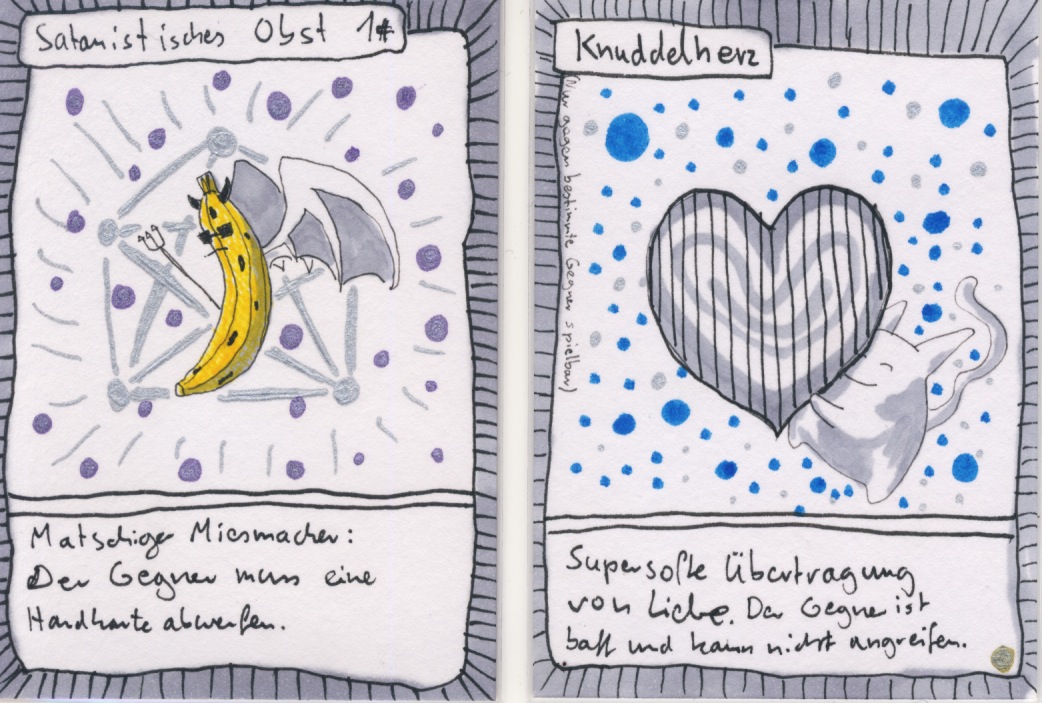 Satanistisches Obst 1#
Matschiger Miesmacher:
Der Gegner muss eine
Handkarte abwerfen.
Knuddelherz
(Nur gegen bestimmte Gegner spielbar)
Supersofte Übertragung
von Liebe. Der Gegner ist
baff und kann nicht angreifen.